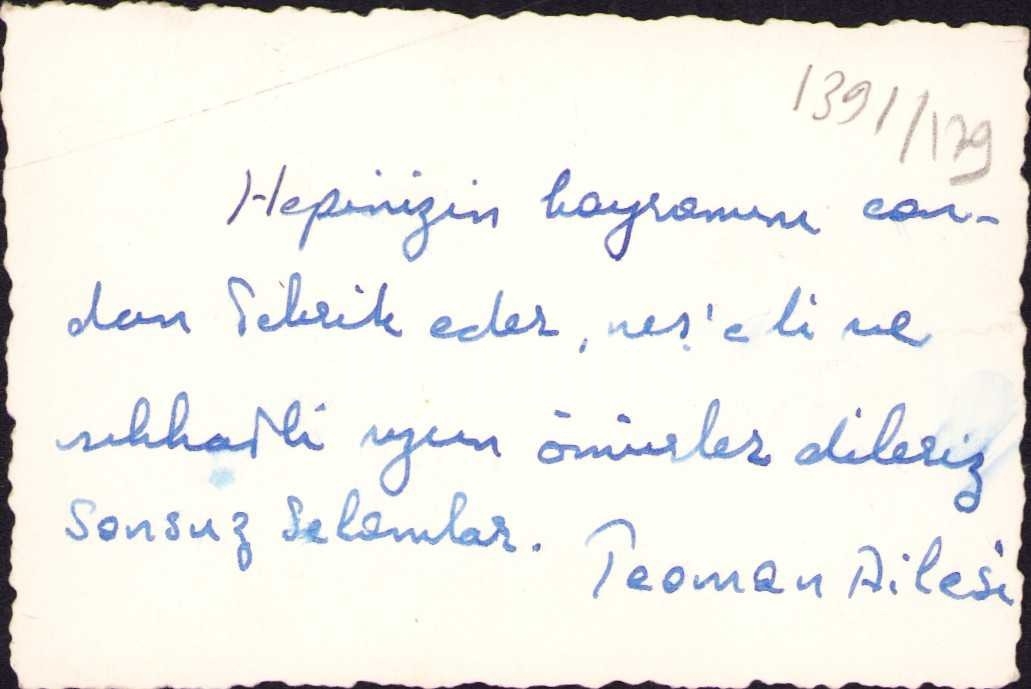 1391/179
Hepinizin bayramını can-
dan tebrik eder, neş'eli ve
sıhhatli uzun ömürler dileriz
Sonsuz Selamlar.
Teoman Ailesi